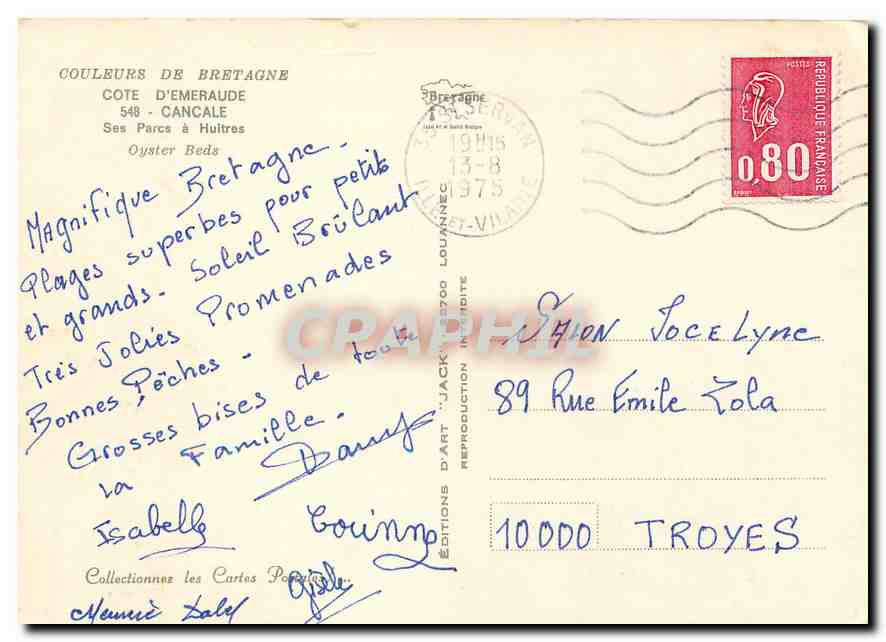 COULEURS DE BRETAGNE
COTE D'EMERAUDE
548 - CANCALE
Ses Parcs à Huîtres
Oyster Beds
Magnifique Bretagne.
Plages superbes pour petits
et grands. Soleil Brûlant
Très Jolies Promenades
Bonnes Pêches.
Grosses bises de toute
la Famille.
Dany
Isabelle
Corinne
Gisèle
Collectionnez les Cartes Postales
ÉDITIONS D'ART "JACK" LOUANNEC
REPRODUCTION INTERDITE
Bretagne
35 ST SERVAN
19H15
13-8
1975
ILLE-ET-VILAINE
POSTES
REPUBLIQUE FRANÇAISE
0,80
CPAPHIL
Jocelyne
89 Rue Emile Zola
10000 TROYES